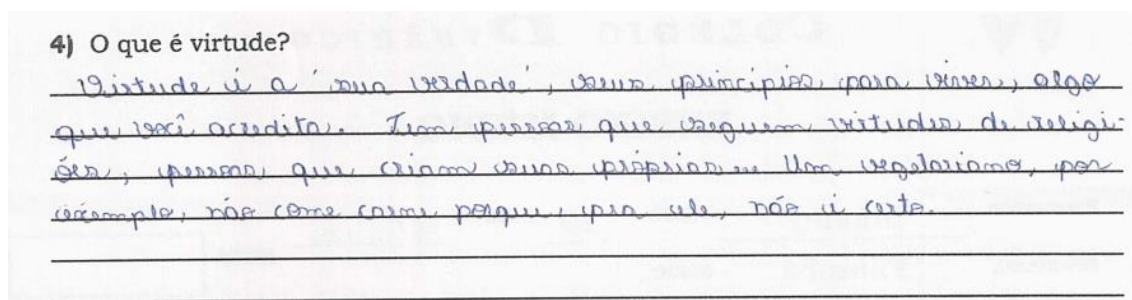 4) O que é virtude?
Virtude é a 'sua verdade', seus princípios para viver, algo
que você acredita. Tem pessoas que seguem virtudes de religi-
ões, pessoas que criam suas próprias... Um vegetariano, por
exemplo, não come carne, porque, pra ele, não é certo.